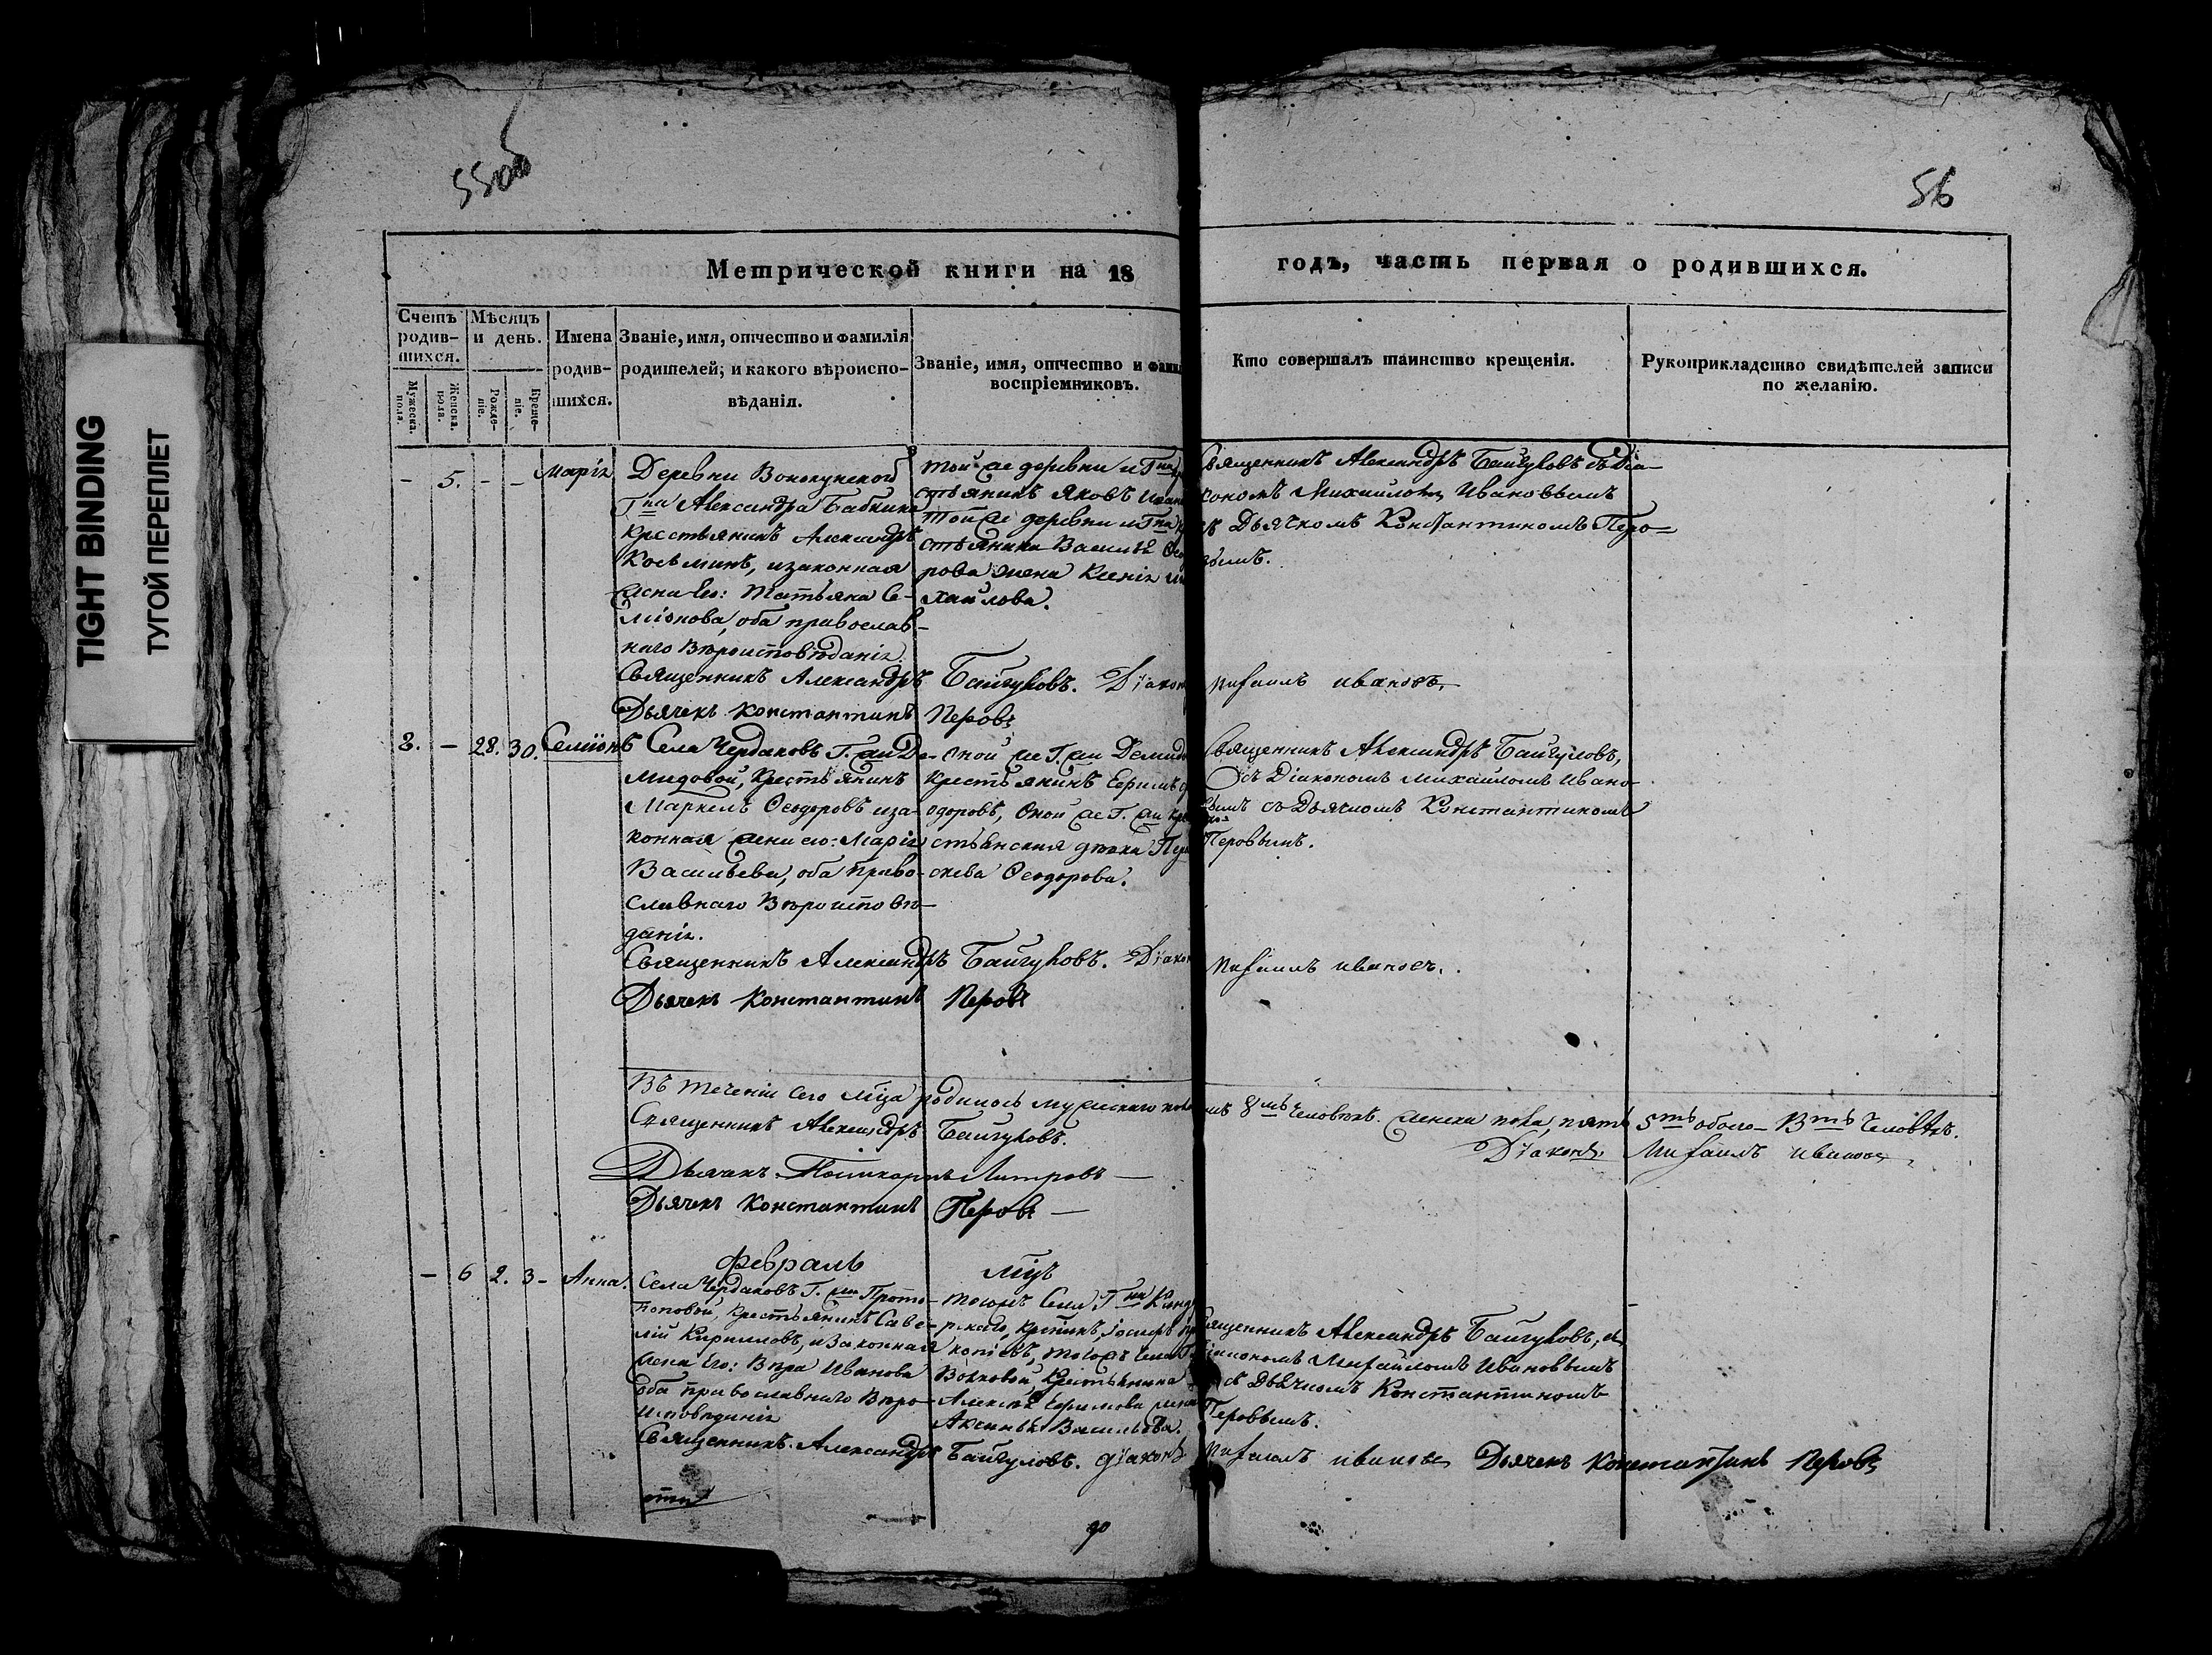 TIGHT BINDING
ТУГОЙ ПЕРЕПЛЕТ
55об
56
Метрической книги на 18
годъ, часть первая о родившихся.
Счетъ родившихся.
Мужеска. пола.
Женска. пола.
Мѣсяцъ и день.
Рожденіе.
Крещеніе.
Имена родившихся.
Званіе, имя, отчество и фамилія
родителей; и какого вѣроиспо-
вѣданія.
Званіе, имя, отчество и фами
воспріемниковъ.
Кто совершалъ таинство крещенія.
Рукоприкладство свидѣтелей записи
по желанію.
- 5. - - Марія
Деревни
Гна Александра Бабкина
крестьянинъ Александръ
Косьминъ, изаконная
жена Его: Татьяна Се-
міонова, оба православ-
наго Вѣроисповѣданія.
той же деревни и Гна
стьянинъ Яковъ Иван
той же деревни и Гна
стьянина Василья Ѳео
рова жена Ксенія Ми
хайлова.
Священникъ Александръ Байгуловъ съ Діа-
кономъ Михайломъ Ивановымъ
Дьячкомъ Константиномъ Перо-
вымъ.
Священникъ Александръ Байгуловъ. Діакон Михаилъ Ивановъ
Дьячекъ Константинъ Перовъ
8. - 28. 30. Семіонъ
Села Чердаковъ Г. жи Де-
мидовой, Крестьянинъ
Маркелъ Ѳеодоровъ иза-
конная жена его: Марія
Васильева, оба право-
славнаго Вѣроисповѣ-
данія.
оной же Г. жи Демидо
крестьянинъ Ефимъ Ѳ
одоровъ, Оной же Г. жи кре
стьянская дѣвка Пра
сковья Ѳеодорова.
Священникъ Александръ Байгуловъ,
съ Діакономъ Михайломъ Ивано
вымъ съ Дьячкомъ Константиномъ
Перовымъ.
Священникъ Александръ Байгуловъ. Діакон Михаилъ Ивановъ.
Дьячекъ Константинъ Перовъ
Въ теченіи сего мѣца родилось мужескаго пола 8мь человѣкъ. женска пола, пять 5ть обоего 13ть Человѣкъ.
Священникъ Александръ Байгуловъ.
Діаконъ Михаилъ Ивановъ
Дьячекъ Поликарпъ
Дьячекъ Константинъ Перовъ
Февраль мцъ
- 6 2. 3 - Анна.
Села Чердаковъ Г. жи Прото-
поповой, крестьянинъ Саве-
лій Кирилловъ, изаконная
жена Его: Вѣра Иванова
оба православнаго Вѣро-
исповѣданія
тогожъ Села, Гна
Іосифъ Пр
копіевъ, тогожъ села Г
Волковой, Крестьянина
Алексѣя Ефимова жена
Аксинья Васильева.
Священникъ Александръ Байгуловъ, съ
Діакономъ Михайломъ Ивановымъ
съ Дьячкомъ Константиномъ
Перовымъ.
Священникъ Александръ Байгуловъ. Діаконъ Михаилъ Ивановъ Дьячекъ Константинъ Перовъ